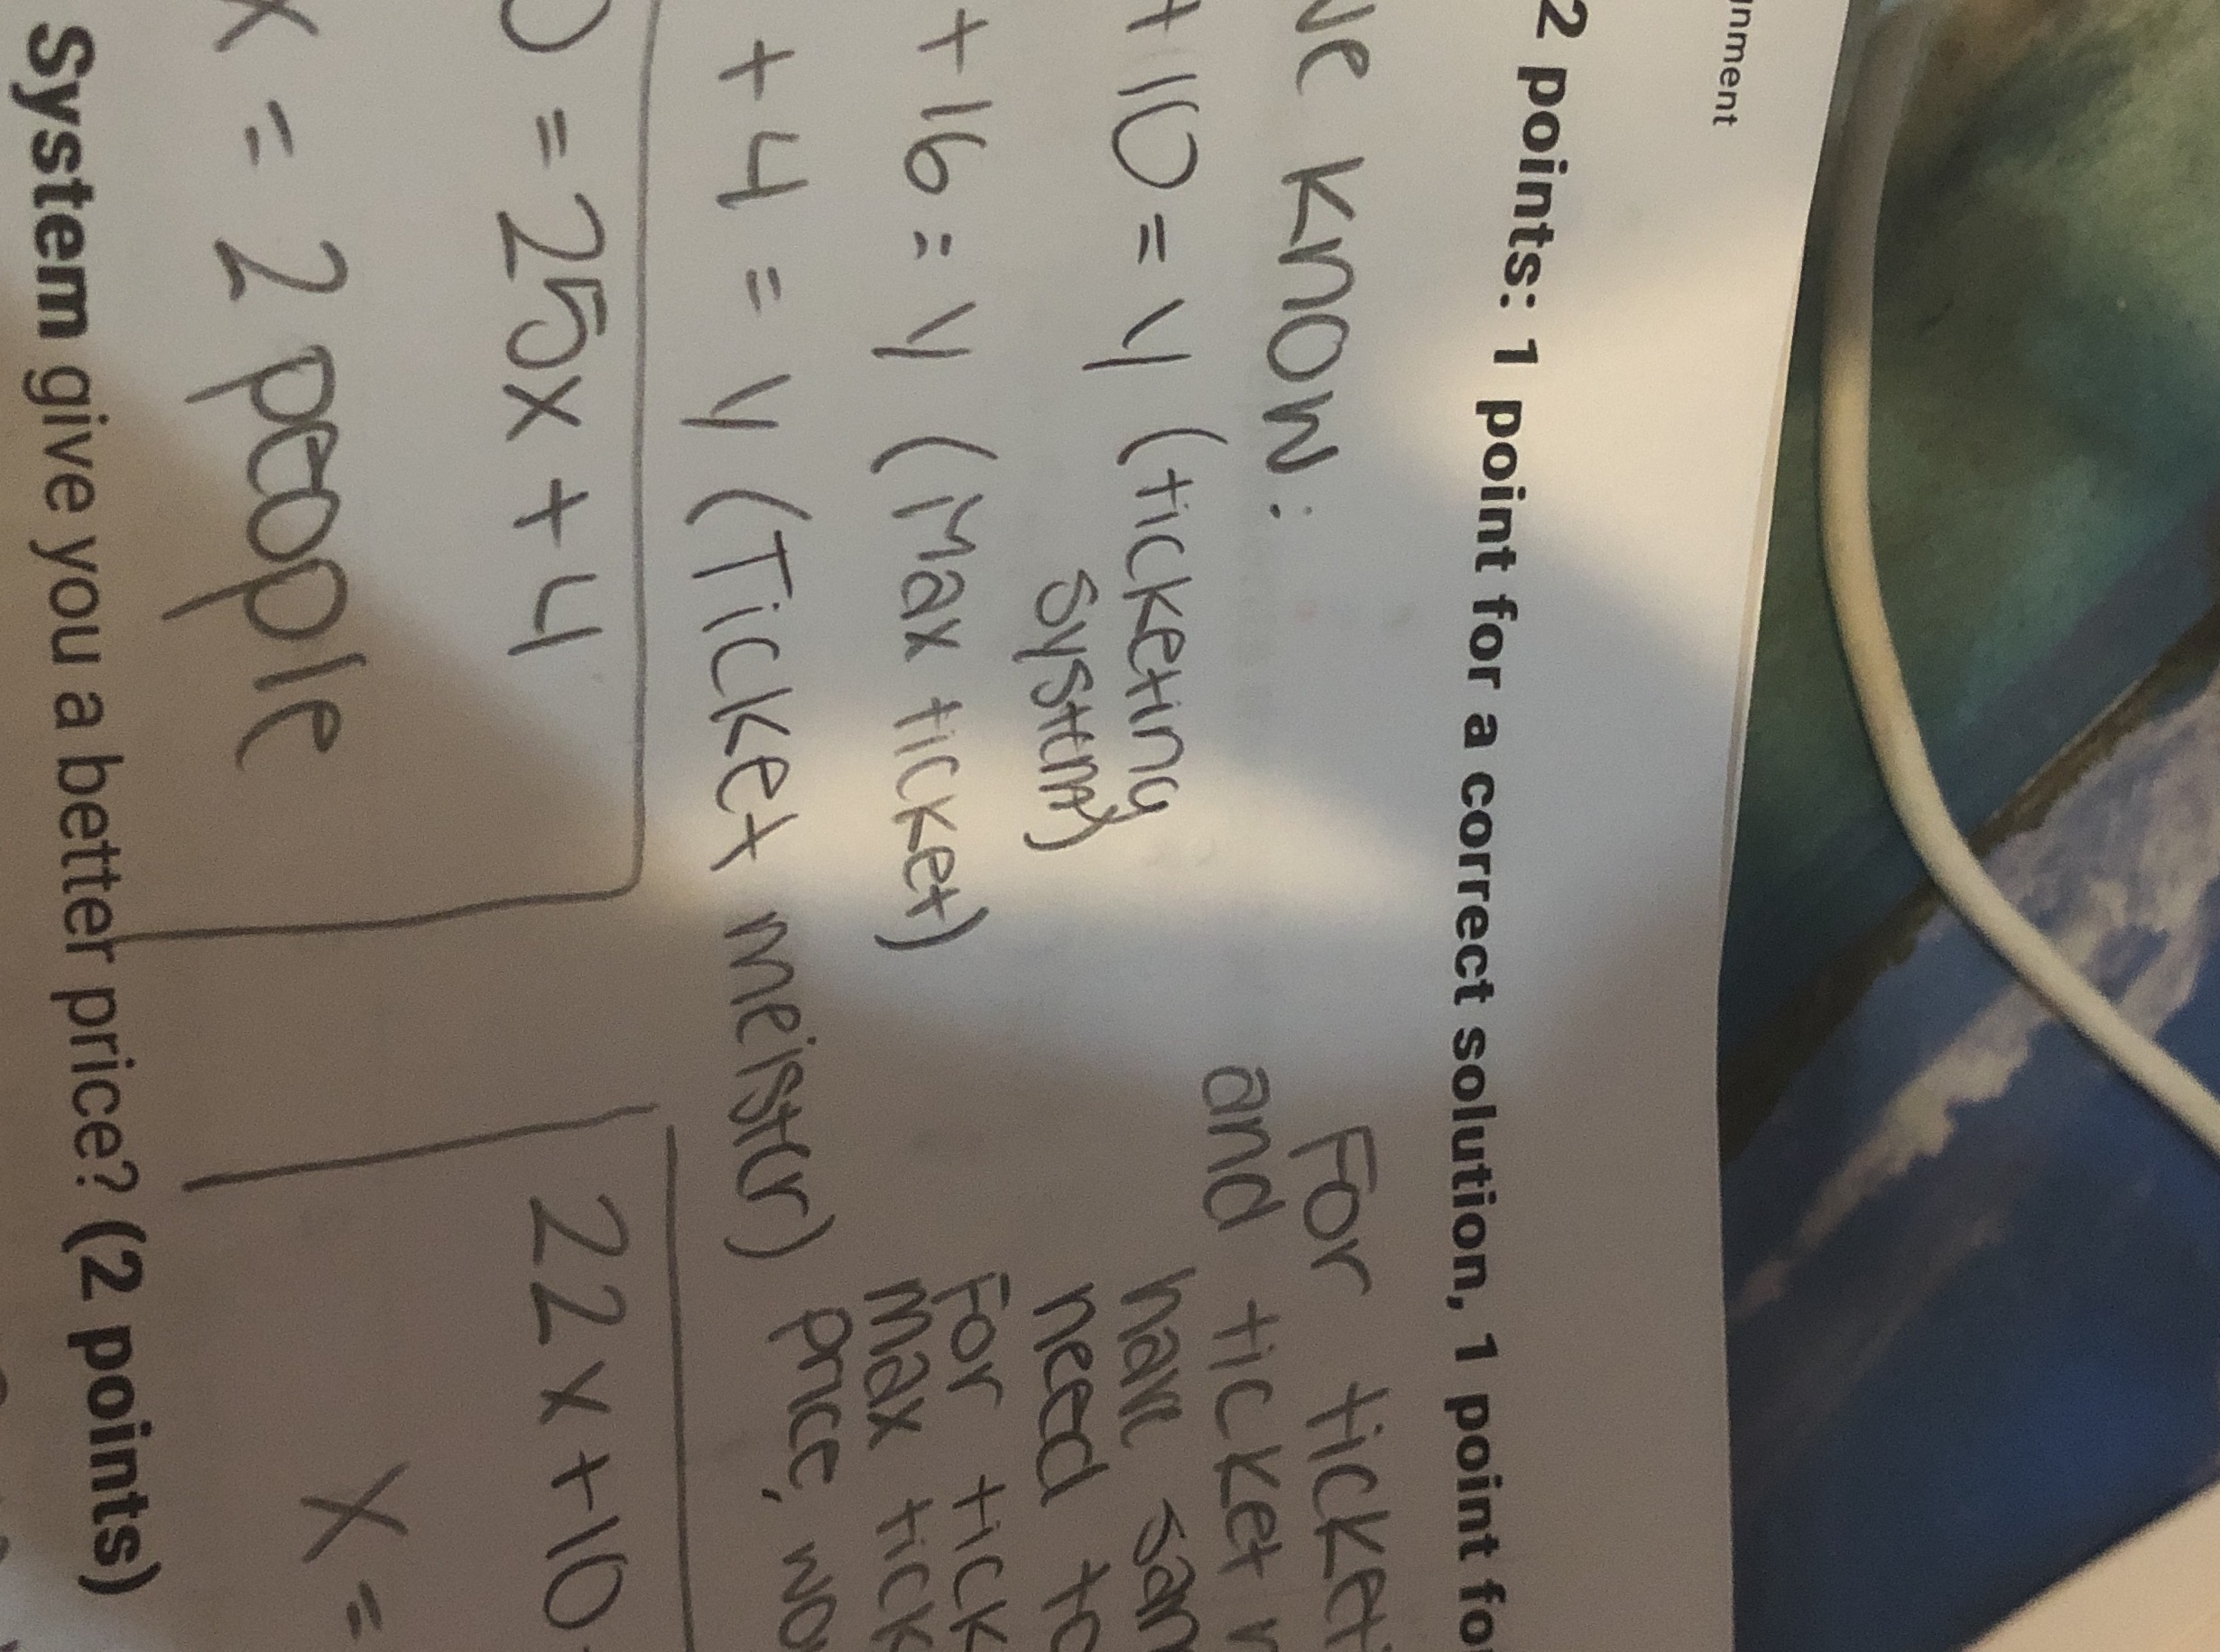 2 points: 1 point for a correct solution, 1 point for
know:
+ 10 = y (ticketing
system)
+ 16 = y (Max ticket)
+ 4 = y (Ticket meister)
For ticket
and ticket
have
need to
For
max
price,
= 25x + 4
x = 2 people
22x + 10
x =
System give you a better price? (2 points)